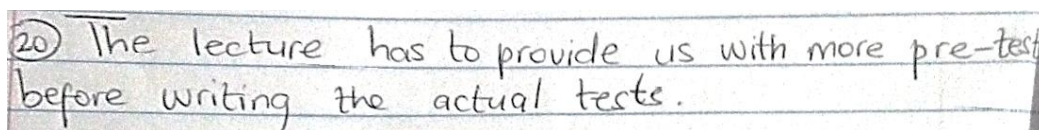 20 The lecture has to provide us with more pre-test
before writing the actual tests.